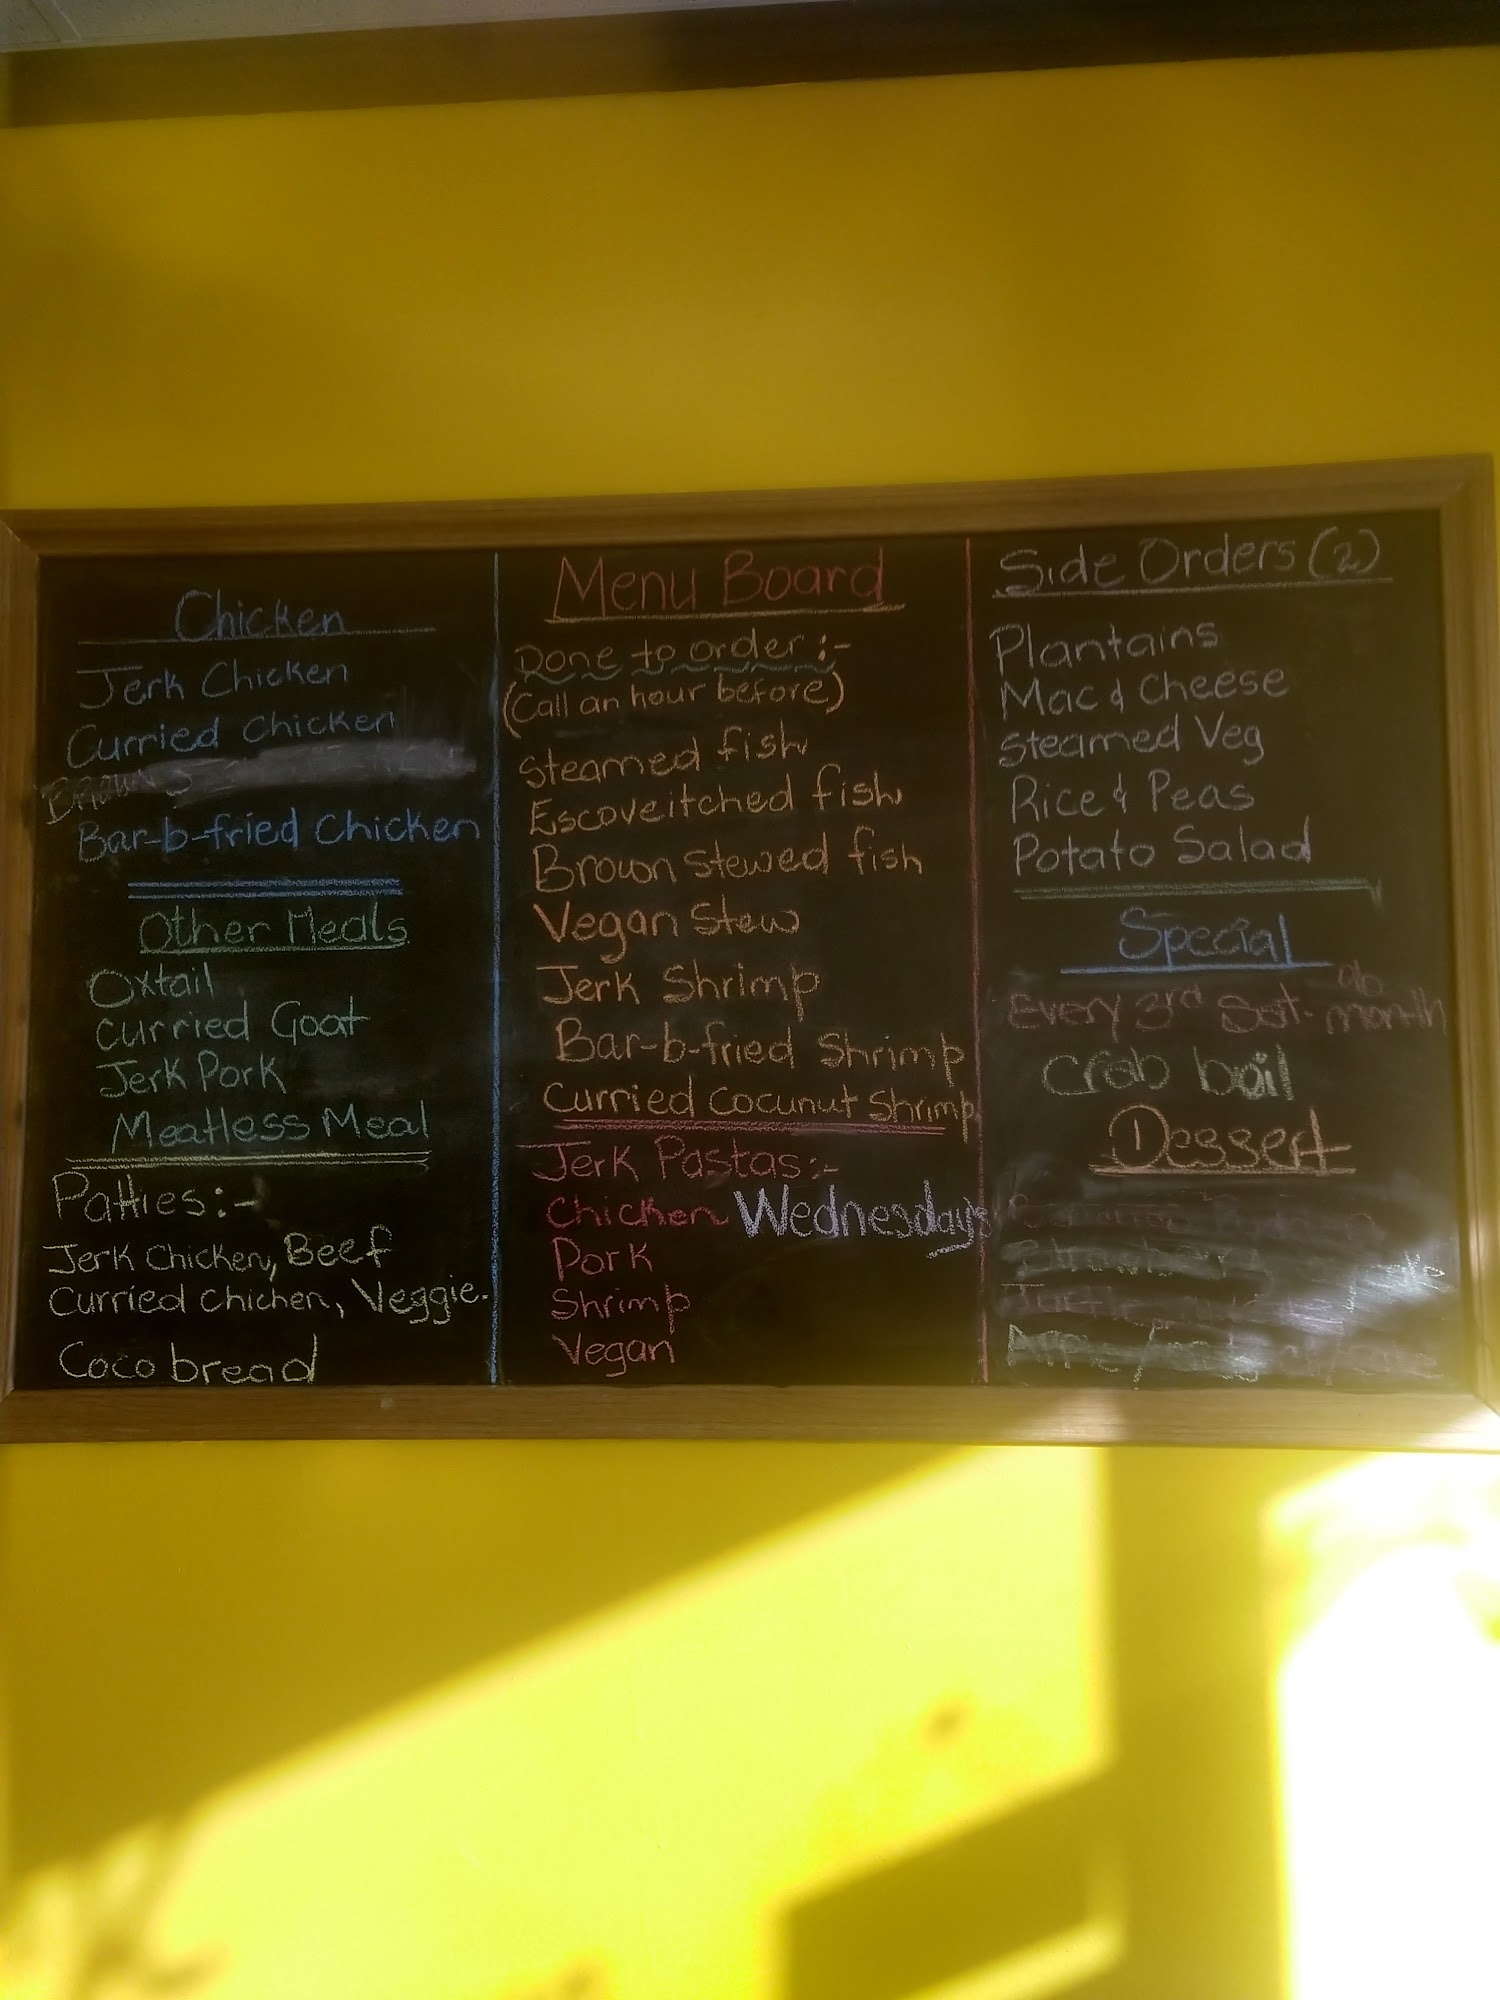 Chicken
Jerk Chicken
Curried Chicken
Brown S
Bar-b-fried Chicken
Other Meals
Oxtail
Curried Goat
Jerk Pork
Meatless Meal
Patties:-
Jerk Chicken, Beef
Curried Chichen, Veggie.
Coco bread
Menu Board
Done to order:-
(Call an hour before)
Steamed fish
Escoveitched fish
Brown Stewed fish
Vegan Stew
Jerk Shrimp
Bar-b-fried Shrimp
Curried Cocunut Shrimp
Jerk Pastas:-
Chicken Wednesdays
Pork
Shrimp
Vegan
Side Orders (2)
Plantains
Mac & Cheese
Steamed Veg
Rice & Peas
Potato Salad
Special
Every 3rd Sat. month
Crab boil
Dessert